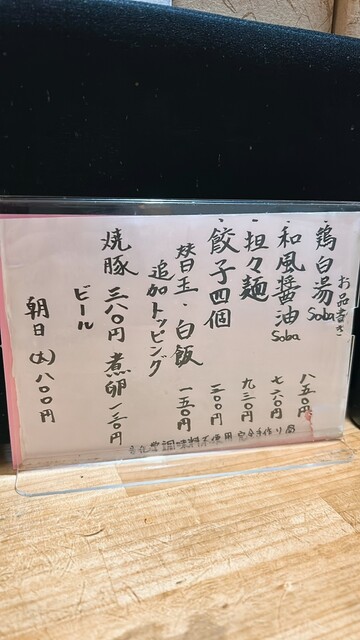 お品書き
鶏白湯Soba 八五〇円
和風醤油Soba 七六〇円
担々麺 九三〇円
餃子四個 二〇〇円
替玉・白飯 一五〇円
追加トッピング
焼豚 三八〇円 煮卵 一三〇円
ビール
朝日(大)八〇〇円
調味料不使用